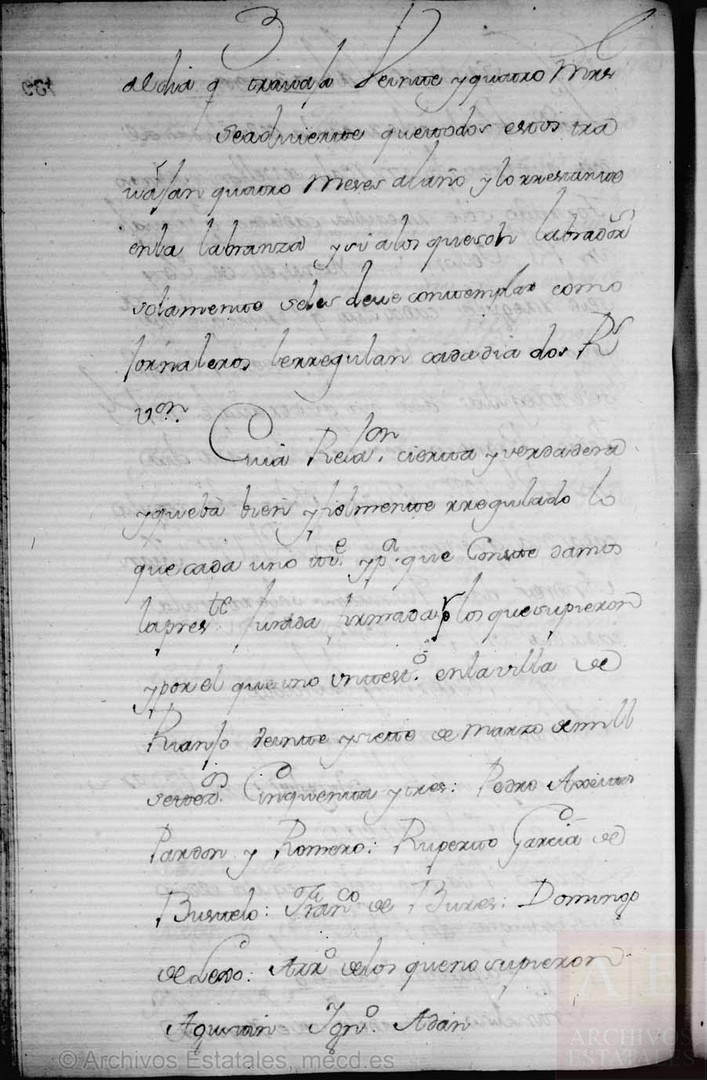 al dia q trauaja Veinte y quatro Mrs
se aduierte que todos estos tra
uajan quatro Meses al año y lo rrestante
en la labranza y si a los que son labradors
solamente se les deue contemplar como
Jornaleros le rregulan cada dia dos Rs
von.
Cuia Relaon. cierta y verdadera
y que ba bien y fielmente rregulado lo
que cada uno tte. y pa. que Conste damos
la preste Jurada firmada p los que supieron
y por el que no vn testo. en la villa de
Rianjo Veinte y siete de Marzo de mill
setezos. Cinquenta y tres: Pedro
Pardon y Romero: Ruperto Garcia de
Busuelo: Franco de Bures: Domingo
de Leso: Arro de los que no supieron
Agustin Igno. Adan
© Archivos Estatales, mecd.es
ARCHIVOS
ESTATALES